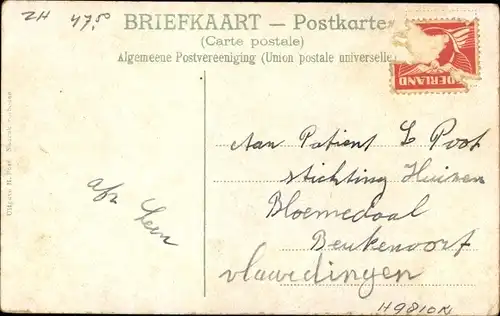 ZH 47,50
BRIEFKAART — Postkarte
(Carte postale)
Algemeene Postvereeniging (Union postale universelle)
NEDERLAND
aan Patient L Poot
stichting Huizen
Bloemedaal
Beukenoorf
vlaardingen
afz Leen
H9810K